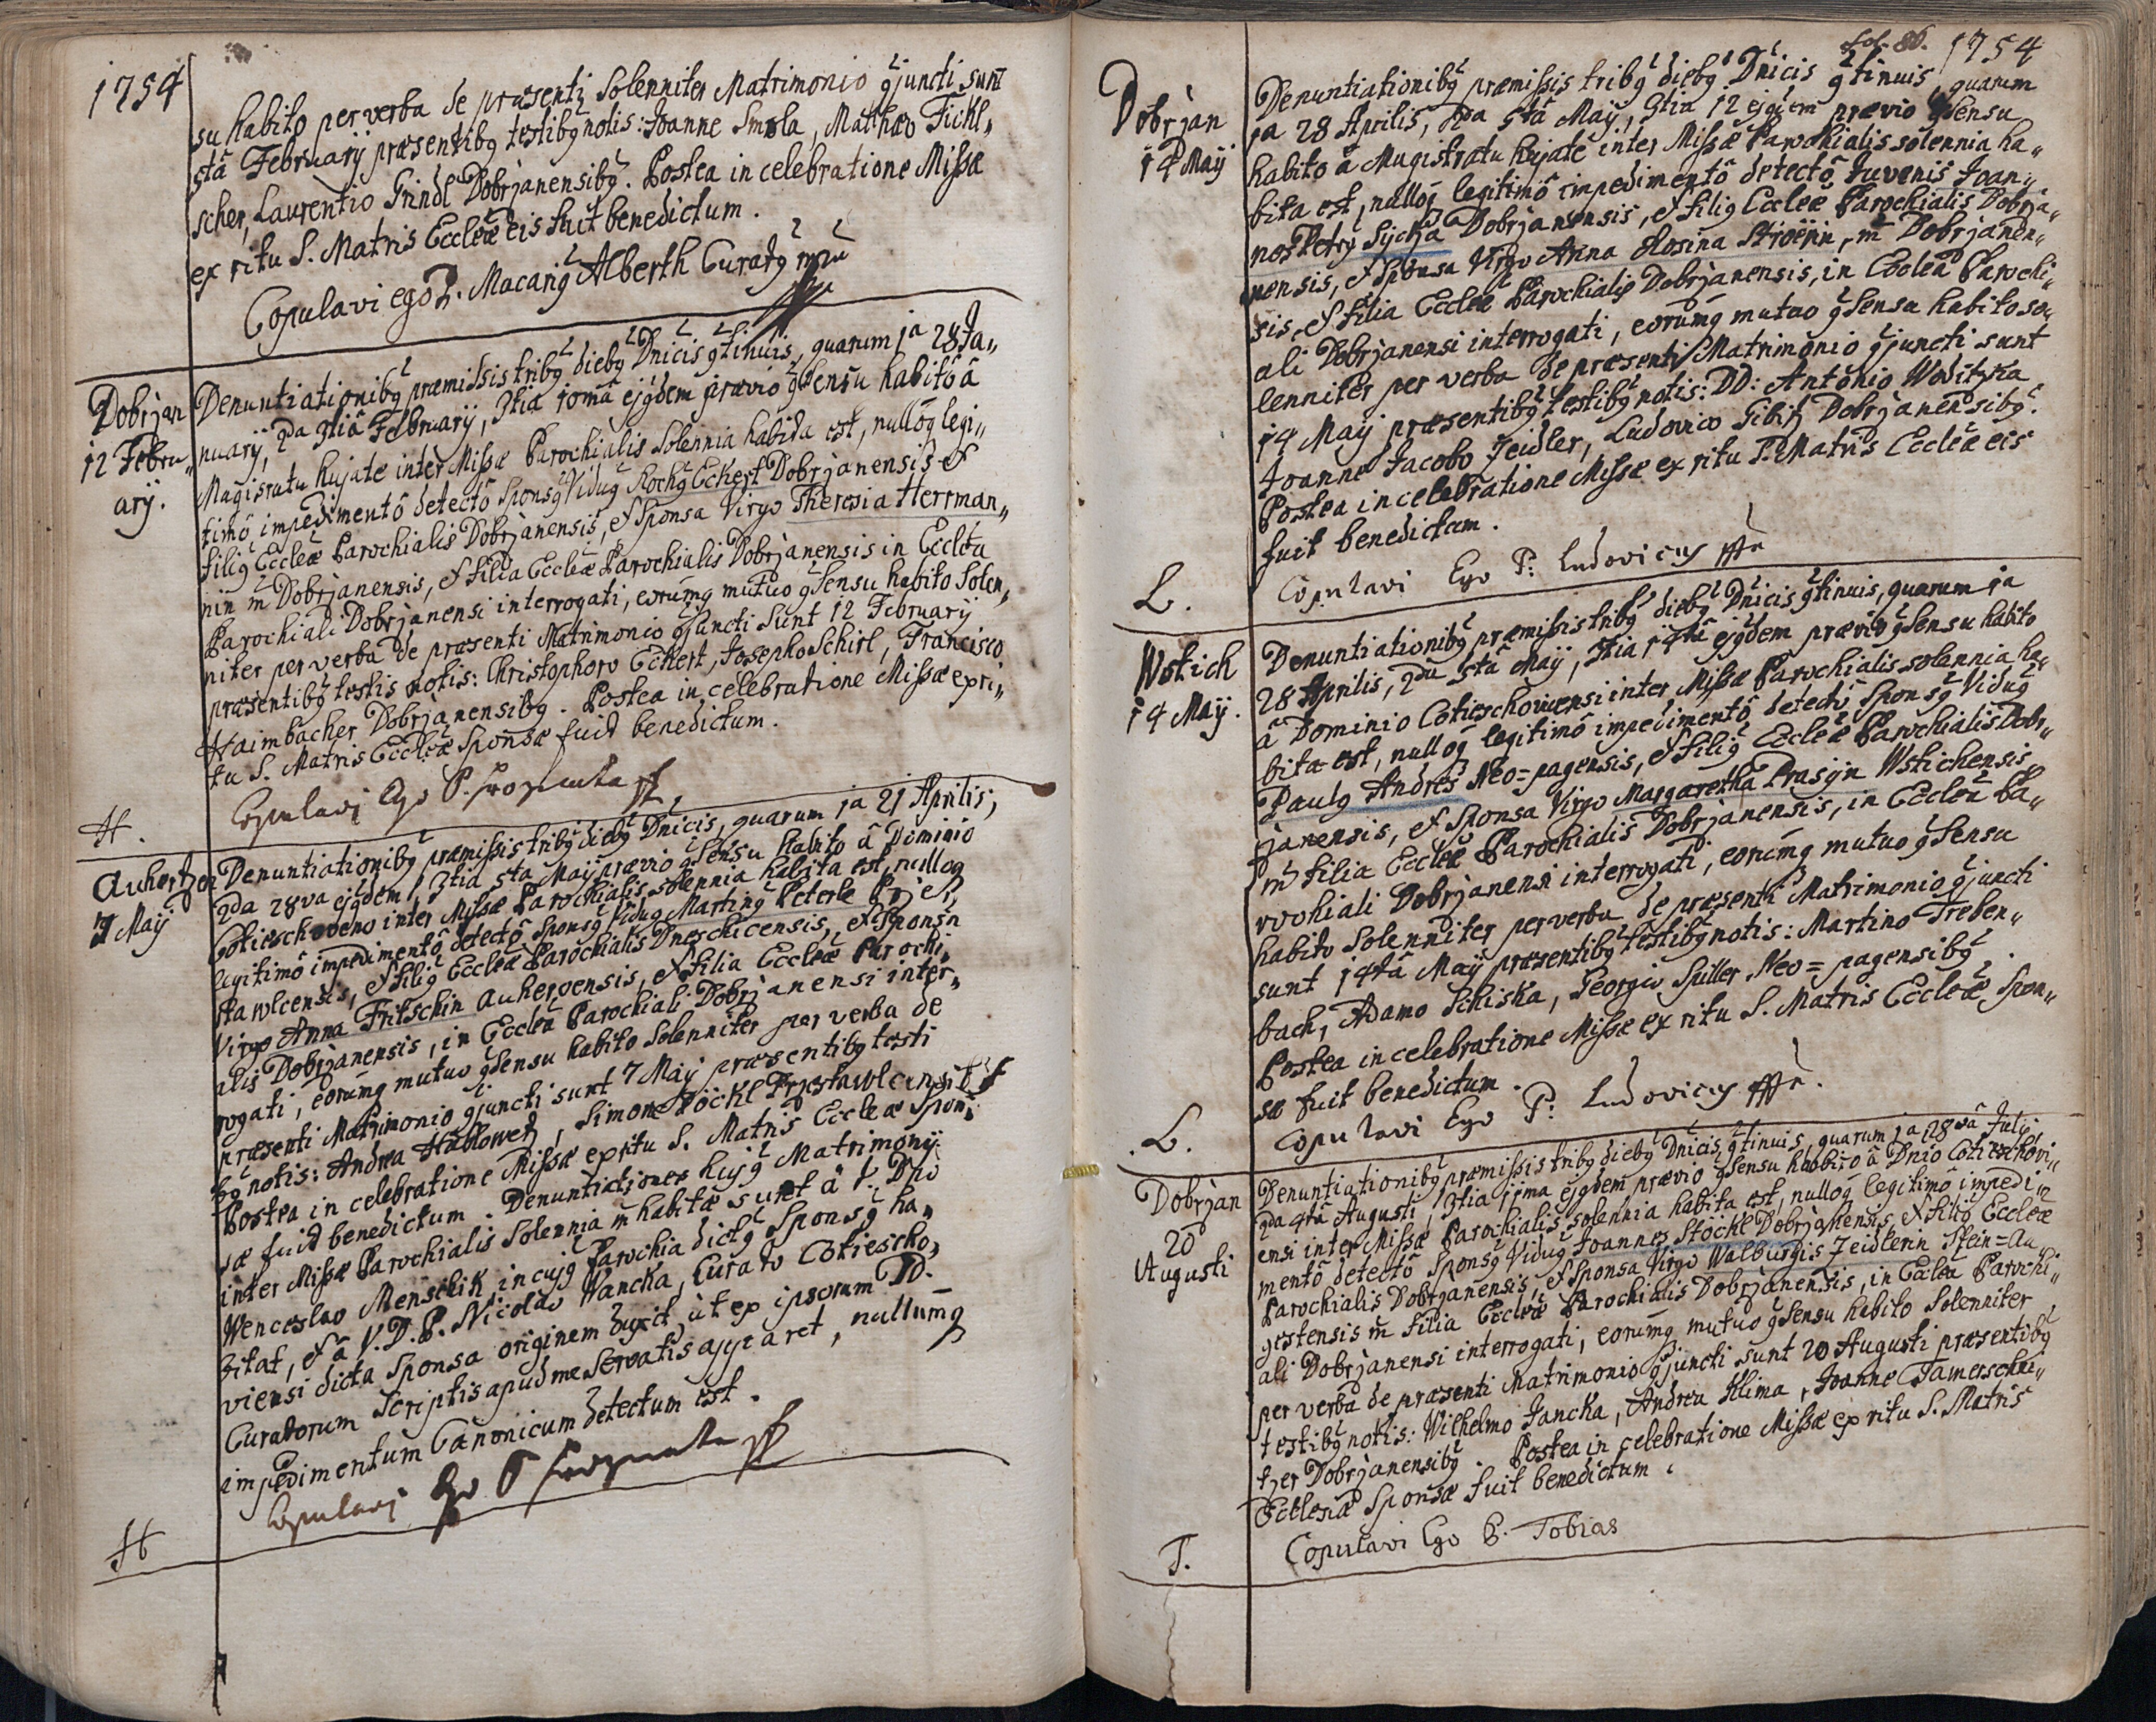 1754
su habito per verba de præsenti Solenniter Matrimonio gjuncti sunt
5tâ Februarij præsentibg testibg notis: Joanne Smola, Matthæo Fickl„
scher, Laurentio Grindl Dobrjanensibg. Postea in celebratione Missæ
ex ritu S. Matris Eccleæ eis fuit benedictum.
Copulavi ego P. Macarig Alberth Curatg mpr
Dobrjan
12 Febru„
arij.
Denuntiationibg præmissis tribg diebg Dnicis gtinuis, quarum 1a 28 Ja„
nuarij, 2da 3tiâ February, 3tia 10mâ ejgdem prævio gsensu habito â
Magisratu hujate inter Missæ Parochialis Solennia habita est, nullog legi„
timô impedimentô detectô Sponsg Vidug Rochg Eckert Dobrjanensis et
filig Eccleæ Parochialis Dobrjanensis, et Sponsa Virgo Theresia Herrman„
nin m̄ Dobrjanensis, et filia Eccleæ Parochialis Dobrjanensis in Ecclea
Parochiali Dobrjanensi interrogati, eorumg mutuo gsensu habito Solen„
niter per verba de præsenti Matrimonio gjuncti sunt 12 Februarij
præsentibg testis notis: Christophoro Eckert, Josepho Schirl, Francisco
Haimbacher Dobrjanensibg. Postea in celebratione Missæ ex ri„
tu S. Matris Eccleæ Sponsæ fuid benedictum.
Copulavi Ego P.
H.
Auhertzen
7 Maij
Denuntiationibg præmissis tribg diebg Dnicis, quarum 1a 21 Aprilis,
2da 28va ejgdem, 3tia 5ta Maij prævio gsensu habito â Diminio
Cotieschoveno inter Missæ Parochialis solennia habita est, nullog
legitimô impedimentô detectô Sponsg Vidug Marting Peterle Przes„
stawlcensis, et filig Eccleæ Parochialis Dneschicensis, et Sponsa
Virgo Anna Fritschin Auhervensis, et filia Eccleæ Parochi„
alis Dobrjanensis, in Eccleâ Parochiali Dobrjanensi inter„
rogati, eorumg mutuo gsensu habito Solenniter per verba de
præsenti Matrimonio gjuncti sunt 7 Maij præsentibg testi
bg notis: Andrea Hablowetz, Simone Böckl Przestawlcensibg
Postea in celebratione Missæ ex ritu S. Matris Eccleæ Spon„
sæ fuid benedictum. Denuntiationes hujg Matrimonij
inter Missæ Parochialis Solennia m̄ habitæ sunt â V. Dno
Wenceslao Menschik, in cujg Parochia dictg Sponsg ha„
bitat, et â V. D. P. Nicolao Wancka, Curato Cotiescho„
viensi dicta Sponsa originem duxit, ut ex ipsorum DD.
Curatorum Scriptis apud me Servatis apparet, nullumg
impedimentum Canonicum detectum est.
Copulavi Ego P
H
fol. 86. 1754
Dobrjan
14 Maij
Denuntiationibg præmissis tribg diebg Dnicis gtinuis, quarum
1a 28 Aprilis, 2da 5tâ Maij, 3tia 12 ejgdem prævio gsensu
habito â Magistratu hujate inter Missæ Parochialis solennia ha„
bita est, nullog legitimô impedimentô detectô Juvenis Joan„
nos Petrg Sijckja Dobrjanensis, et filig Eccleæ Parochialis Dobrja„
nensis, et Sponsa Virgo Anna Rosina Ströerin, m̄ Dobrjanen„
sis, et filia Eccleæ Parochialis Dobrjanensis, in Eccleâ Parochi„
ali Dobrjanensi interrogati, eorumg mutuo gsensu habito so„
lenniter per verba de præsenti Matrimonio gjuncti sunt
14 Maij præsentibg testibg notis: DD: Antonio Woditzka
Joanne Jacobo Zeidler, Ludovico Gibitz Dobrjanensibg.
Postea in celebratione Missæ ex ritu S. Matris Eccleæ eis
fuit benedictum.
Copulavi Ego P: Ludovicus
L.
Wstich
14 Maij.
Denuntiationibg præmissis tribg diebg Dnicis gtinuis, quarum 1a
28 Aprilis, 2da 5tâ Maij, 3tia 12tâ ejgdem prævio gsensu habito
â Dominio Cotieschoviensi inter Missæ Parochialis solennia ha„
bita est, nullog legitimô impedimentô detectô Sponsg Vidug
Paulg Andres Neo=pagensis, et filig Eccleæ Parochialis Dobr„
janensis, et Sponsa Virgo Margaretha Prasijn Wstichensis,
m̄ filia Eccleæ Parochialis Dobrjanensis, in Eccleâ Pa„
rochiali Dobrjanensi interrogati, eorumg mutuo gsensu
habito Solenniter per verba de præsenti Matrimonio gjuncti
sunt 14tâ Maij præsentibg testibg notis: Martino Treben„
bach, Adamo Schiska, Georgio Spiller Neo=pagensibg.
Postea in celebratione Missæ ex ritu S. Matris Eccleæ Spon„
sæ fuit benedictum.
Copulavi Ego P: Ludovicus
L.
Dobrjan
20
Augusti
Denuntiationibg præmissis tribg diebg Dnicis gtinuis, quarum 1a 28vâ Julij,
2da 4tâ Augusti, 3tia 11ma ejgdem prævio gsensu habbito â Dnio Cotieschovi„
ensi inter Missæ Parochialis solennia habita est, nullog legitimô impedi„
mentô detectô Sponsg Vidug Joannes Stöckl Dobrjanensis, et filig Eccleæ
Parochialis Dobrjanensis, et Sponsa Virgo Walburgis Zeidlerin Stein=Au„
jestensis m̄ filia Eccleæ Parochialis Dobrjanensis, in Eccleâ Parochi„
ali Dobrjanensi interrogati, eorumg mutuo gsensu habito Solenniter
per verba de præsenti Matrimonio gjuncti sunt 20 Augusti præsentibg
testibg notis: Wilhelmo Jancka, Andrea Klima, Joanne Tamerschni„
tzer Dobrjanensibg. Postea in celebratione Missæ ex ritu S. Matris
Ecclesiæ Sponsæ fuit benedictum.
Copulavi Ego P. Tobias
T.